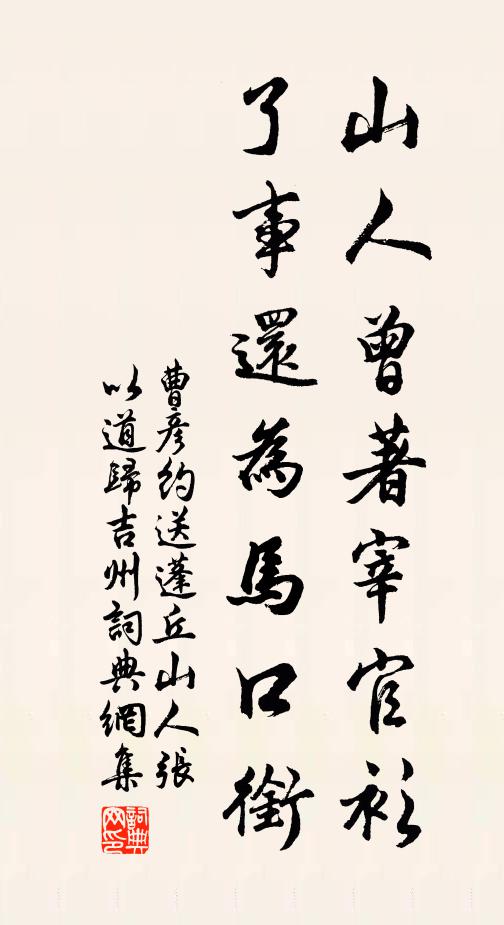 山人曾著宰官衫
了事還為馬口銜
曹彥約送蓬丘山人張
以道歸吉州詞典網集
詞典網印